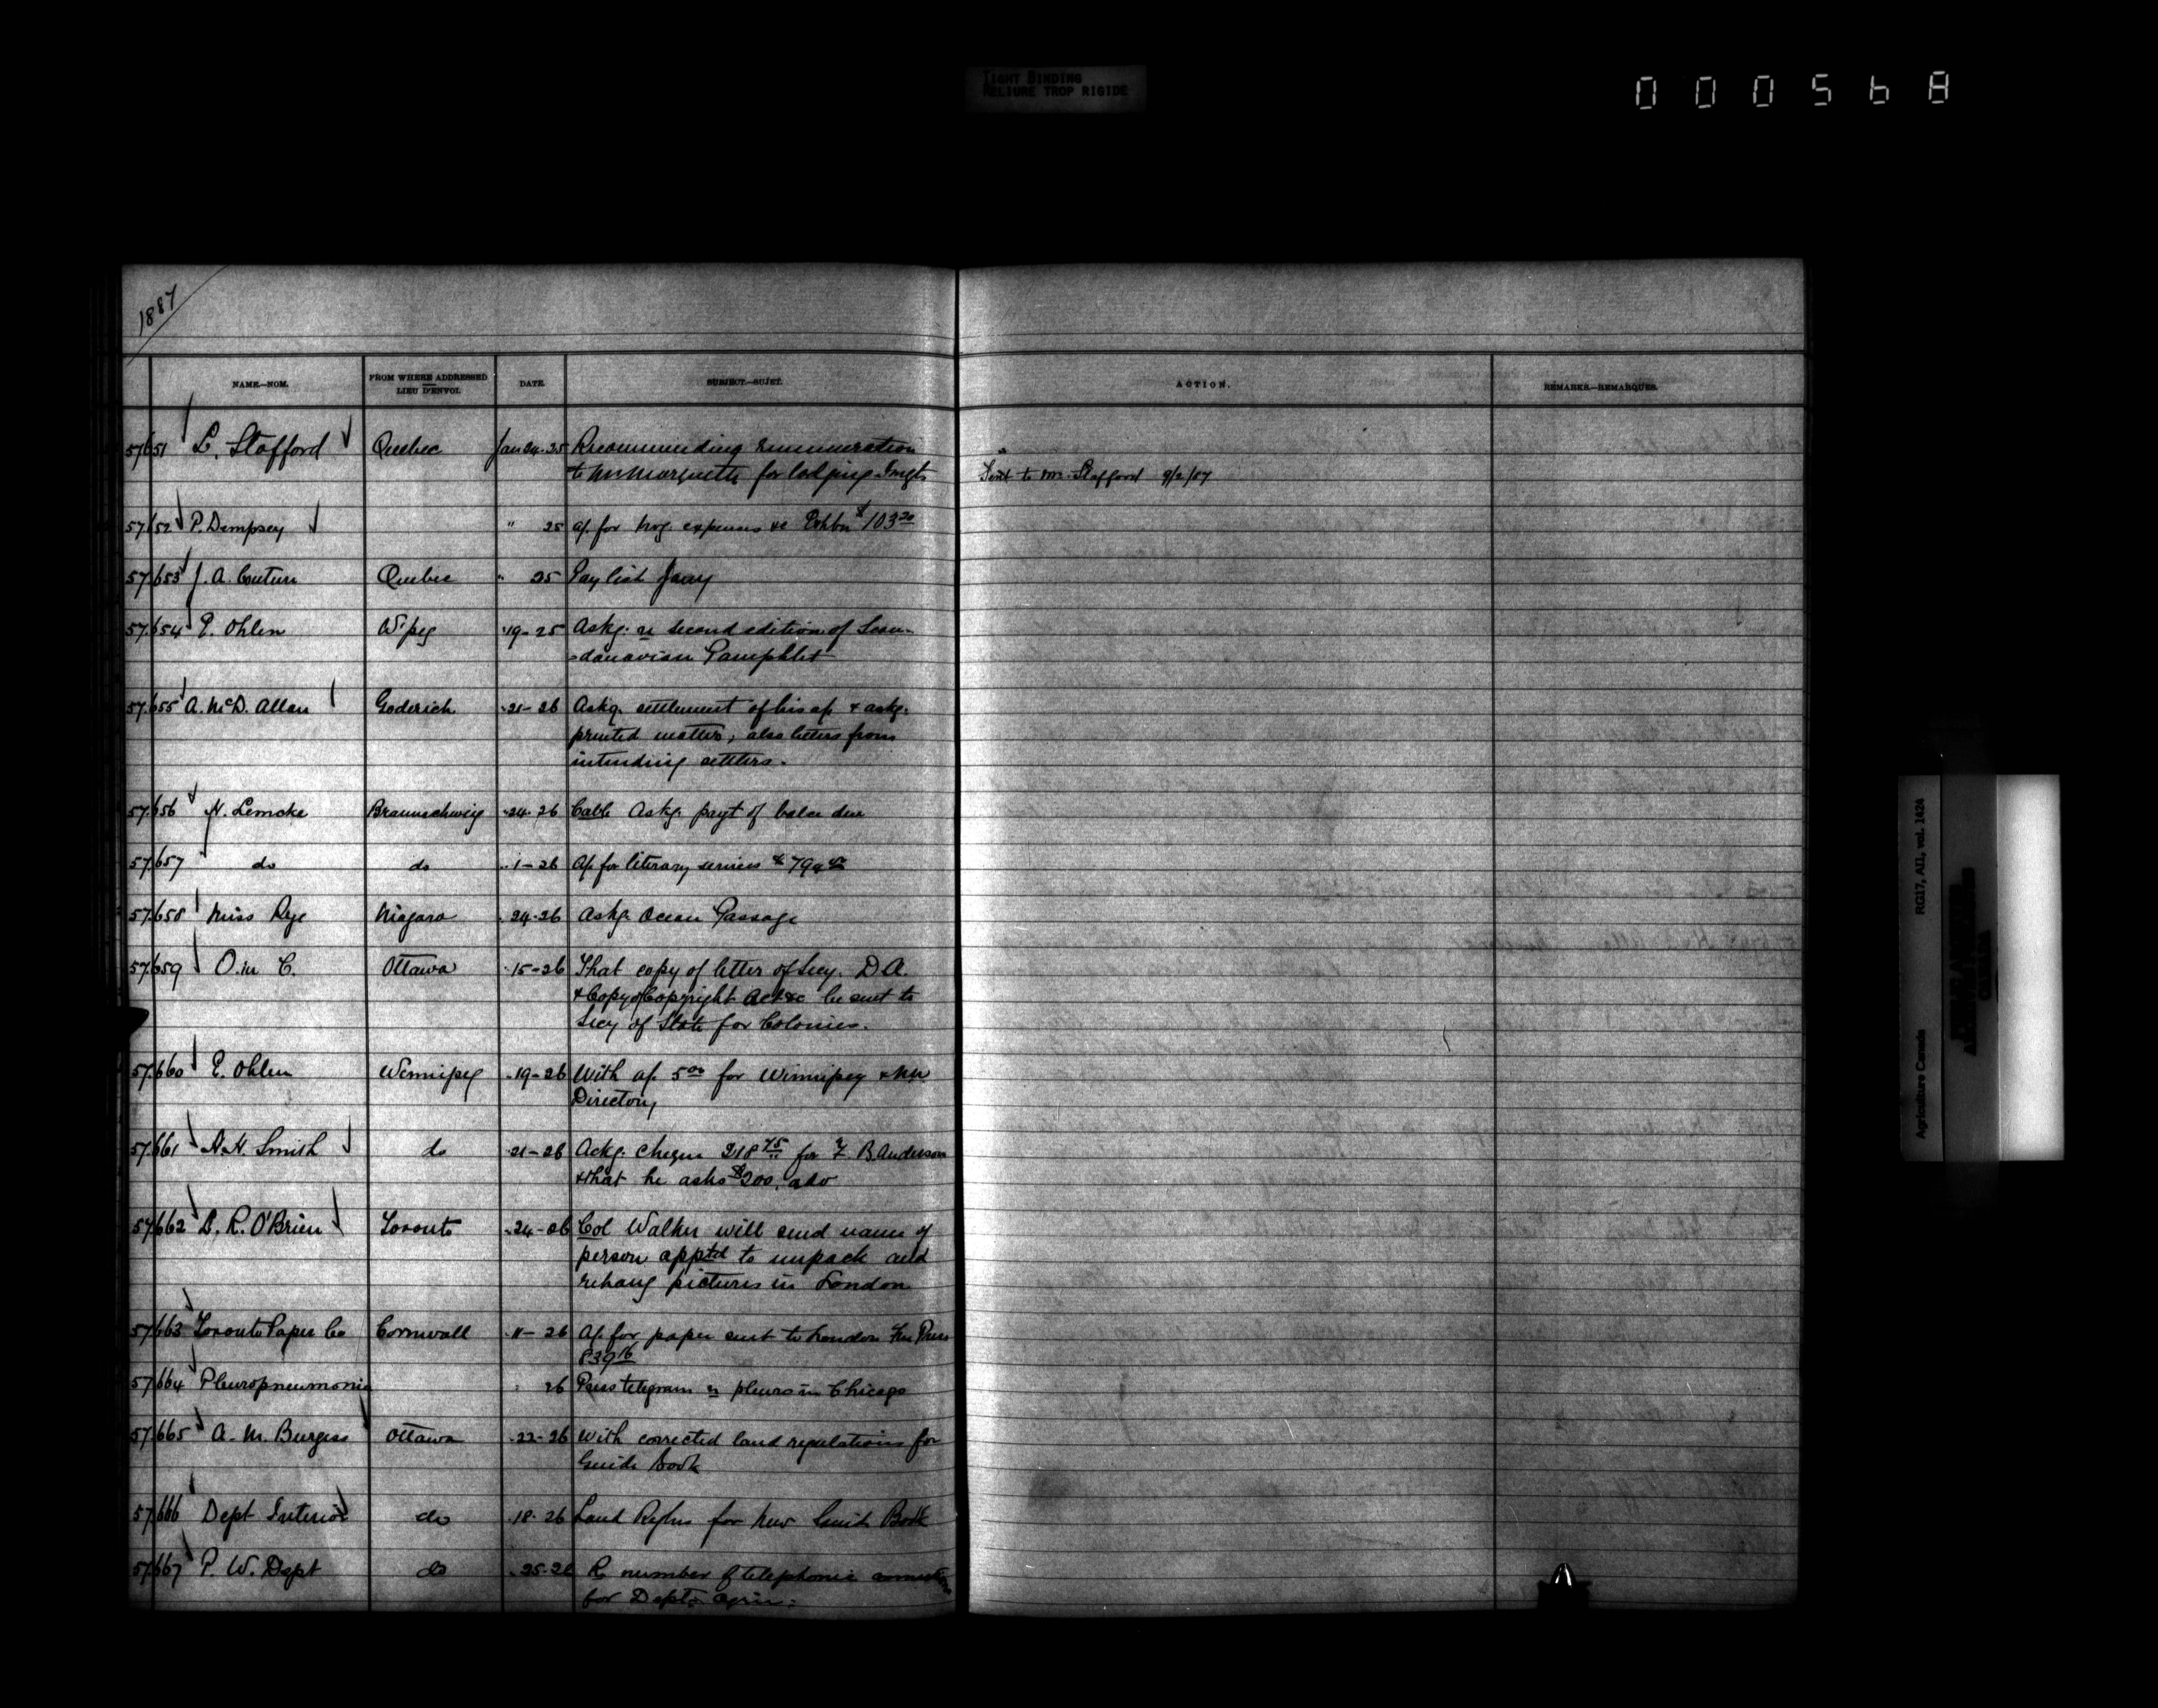 TIGHT BINDING
RELIURE TROP RIGIDE
000568
1887
NAME.—NOM. FROM WHERE ADDRESSED LIEU D'ENVOI. DATE. SUBJECT.—SUJET. ACTION. REMARKS.—REMARQUES.
57651 L. Stafford Quebec Jan 24-25 Recommending remuneration
to Mr Marquette for lodging Imgts Sent to Mr. Stafford 9/2/87
57652 P. Dempsey " 25 a/c for trvg. expenses &c Exhbn $103 20
57653 J. A. Couture Quebec " 25 Pay list Jany
57654 E. Ohlen W'peg "19-25 Askg. re second edition of Scan-
-danavian Pamphlet
57655 A. McD. Allan Goderich "21-26 Askg. settlement of his a/c & askg.
printed matter, also letters from
intending settlers.
57656 H. Lemcke Braunschweig "24-26 Cable Askg. payt of balce due
57657 do do "1-26 A/c for literary services
57658 Miss Rye Niagara "24-26 Askg. Ocean Passage
57659 O. in C. Ottawa "15-26 That copy of letter of Secy. D.A.
& Copy of Copyright Act &c be sent to
Secy of State for Colonies.
57660 E. Ohlen Winnipeg "19-26 With a/c 5 00 for Winnipeg & NW
Directory
57661 H. H. Smith do "21-26 Ackg. cheque 218 75 for F. B. Anderson
& that he asks $200. adv
57662 L. R. O'Brien Toronto "24-26 Col Walker will send name of
person apptd to unpack and
rehang pictures in London
57663 Toronto Paper Co Cornwall "11-26 A/c for paper sent to London Free Press
839 16
57664 Pleuropneumonia " 26 Press telegram re pleuro in Chicago
57665 A. M. Burgess Ottawa "22-26 With corrected land regulations for
Guide Book
57666 Dept Interior do "18-26 Land Regtns for New Guide Book
57667 P. W. Dept do "25-26 Re number of telephonic connections
for Dept. Agric.
Agriculture Canada RG17, AII, vol. 1424
PUBLIC ARCHIVES
ARCHIVES PUBLIQUES
CANADA